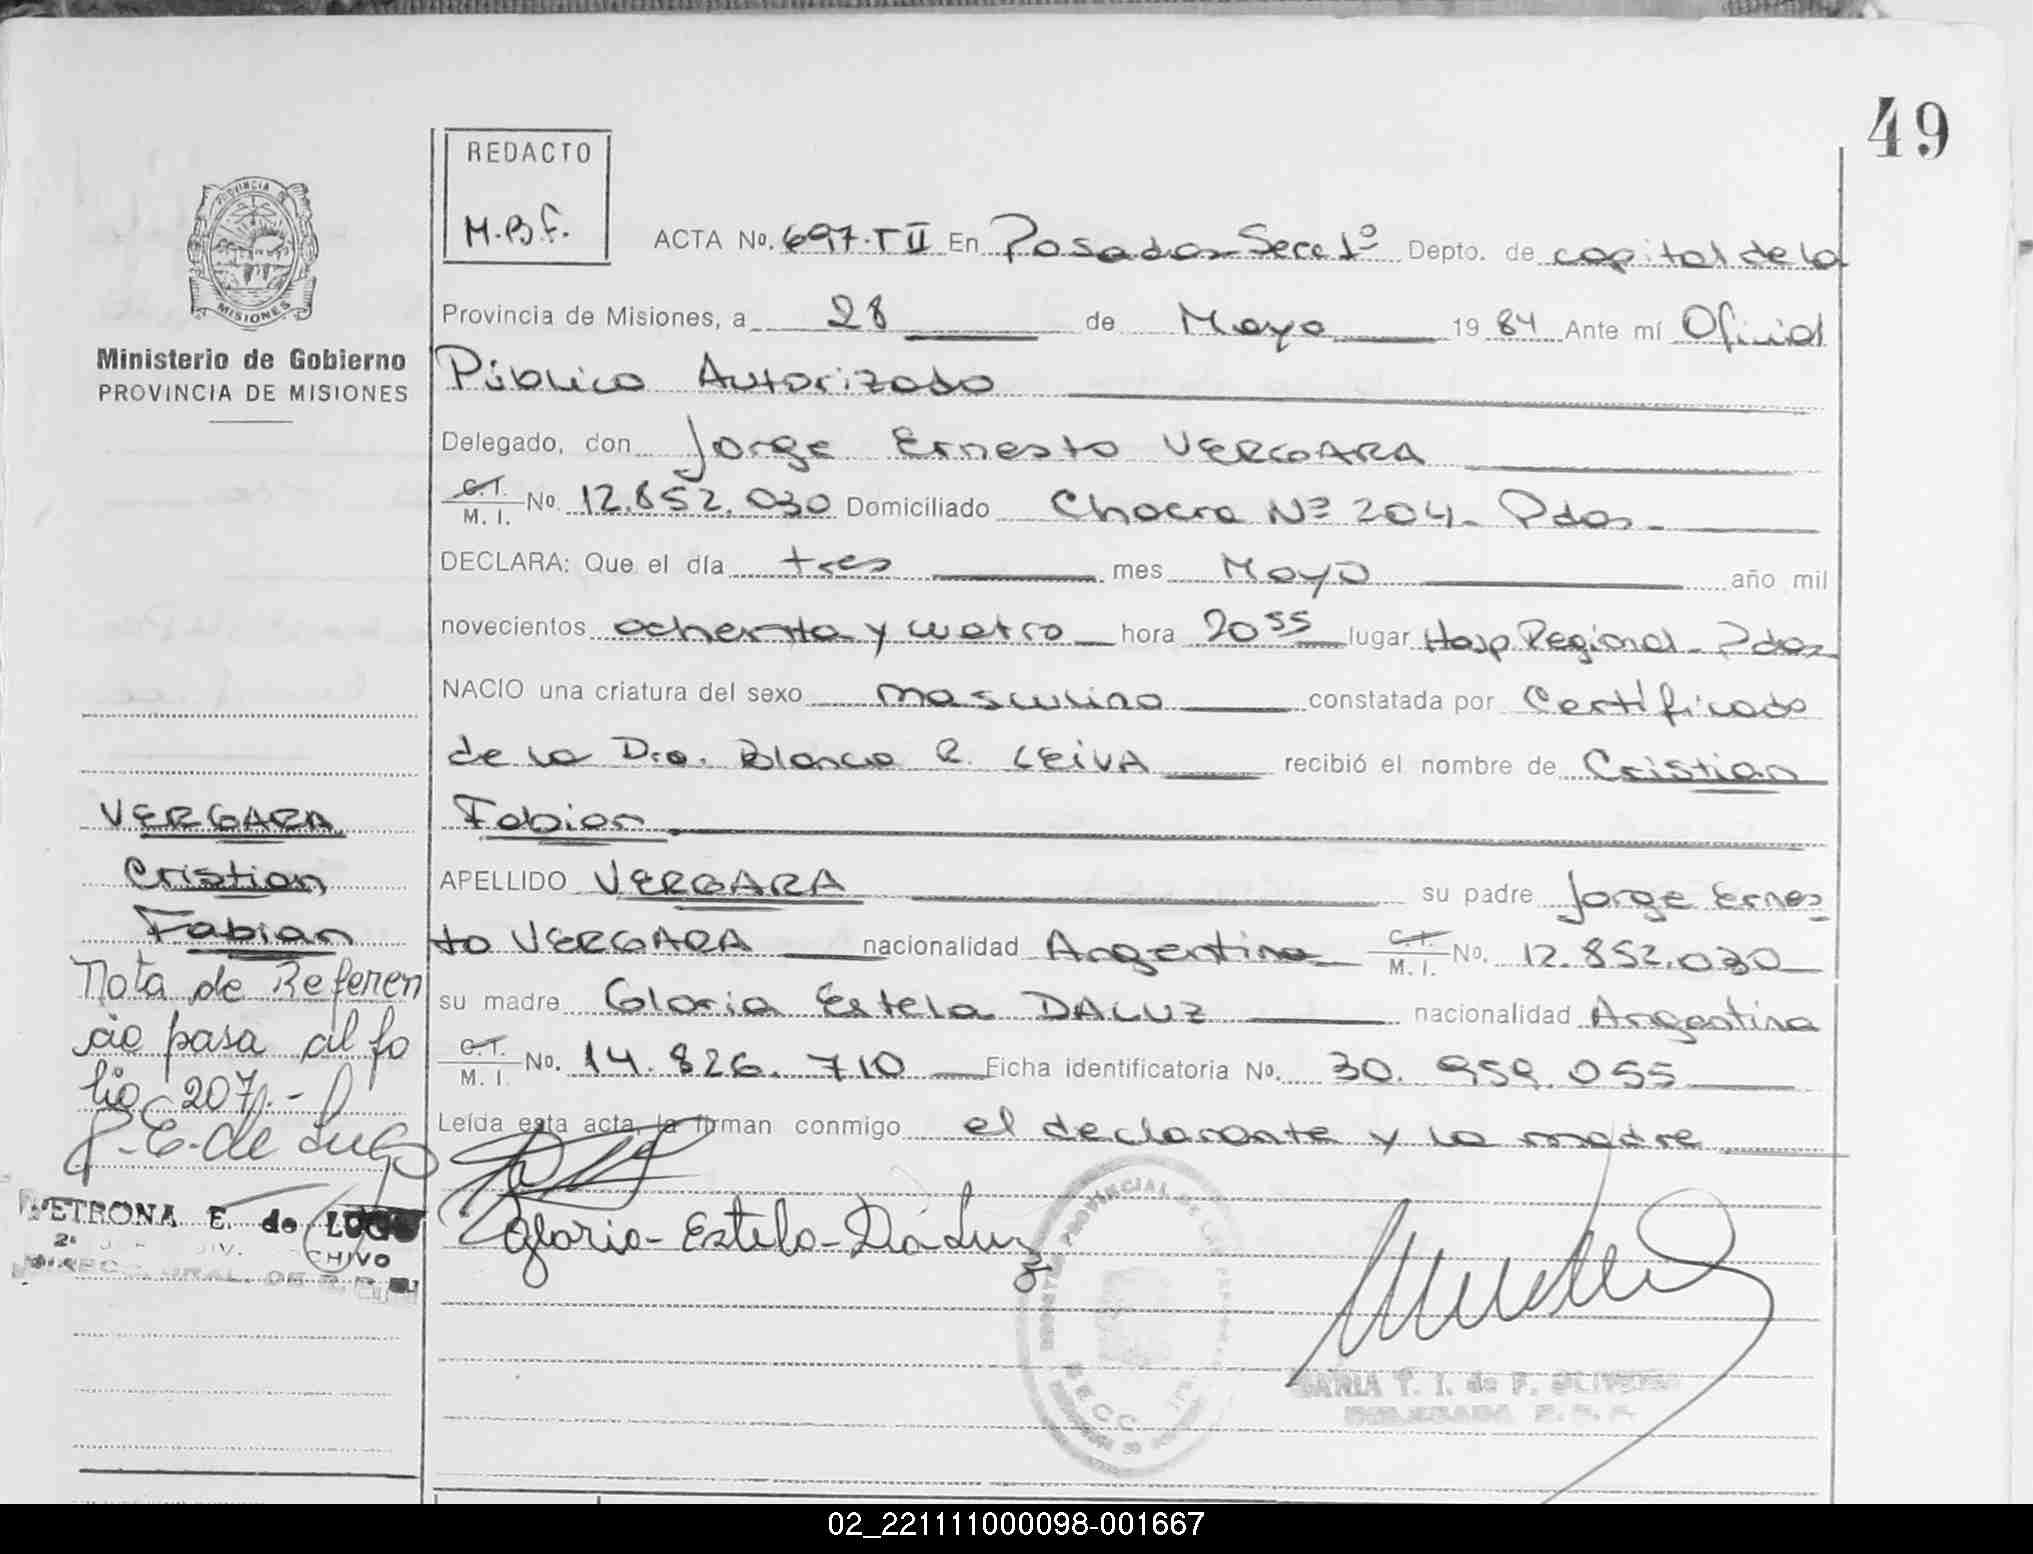 49
REDACTO
M.B.F.
PROVINCIA DE
MISIONES
Ministerio de Gobierno
PROVINCIA DE MISIONES
ACTA No. 697-T II En Posadas Secc 1º Depto. de capital de la
Provincia de Misiones, a 28 de Mayo 19 84 Ante mí Oficial
Público Autorizado
Delegado, don Jorge Ernesto VERGARA
C.I. M. I. No. 12.852.030 Domiciliado Chacra Nº 204 - Pdas.
DECLARA: Que el día tres mes Mayo año mil
novecientos ochenta y cuatro hora 20 55 lugar Hosp Regional - Pdas
NACIO una criatura del sexo masculino constatada por Certificado
de la Dra. Blanca R. LEIVA recibió el nombre de Cristian
Fabian
APELLIDO VERGARA su padre Jorge Ernes
to VERGARA nacionalidad Argentina C.I. M. I. No. 12.852.030
su madre Gloria Estela DALUZ nacionalidad Argentina
C.I. M. I. No. 14.826.710 Ficha identificatoria No. 30.959.055
Leída esta acta, la firman conmigo el declarante y la madre
VERGARA
Cristian
Fabian
Nota de Referen
cia pasa al fo
lio 207.-
P. E. de Lugo
PETRONA E. de LUGO
Gloria - Estela - Da Luz
REGISTRO PROVINCIAL DE LAS
T. I. de F. OLIVEIRA
02_221111000098-001667